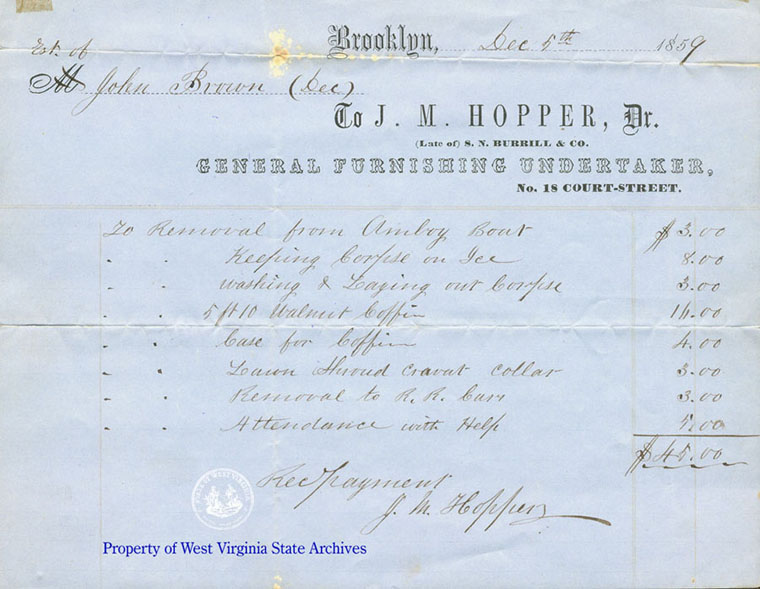 Brooklyn, Dec 5th 1859
Est. of
M John Brown (Dec)
To J. M. HOPPER, Dr.
(Late of) S. N. BURRILL & CO.
GENERAL FURNISHING UNDERTAKER,
No. 18 COURT-STREET.
To Removal from Amboy Boat $3.00
" " Keeping Corpse on Ice 8.00
" " washing & Laying out Corpse 3.00
" " 5 ft 10 Walnut Coffin 16.00
" " Case for Coffin 4.00
" " Lawn Shroud cravat collar 3.00
" " Removal to R. R. Cars 3.00
" " Attendance with Help 5.00
$45.00
Rec payment
J. M. Hopper
Property of West Virginia State Archives